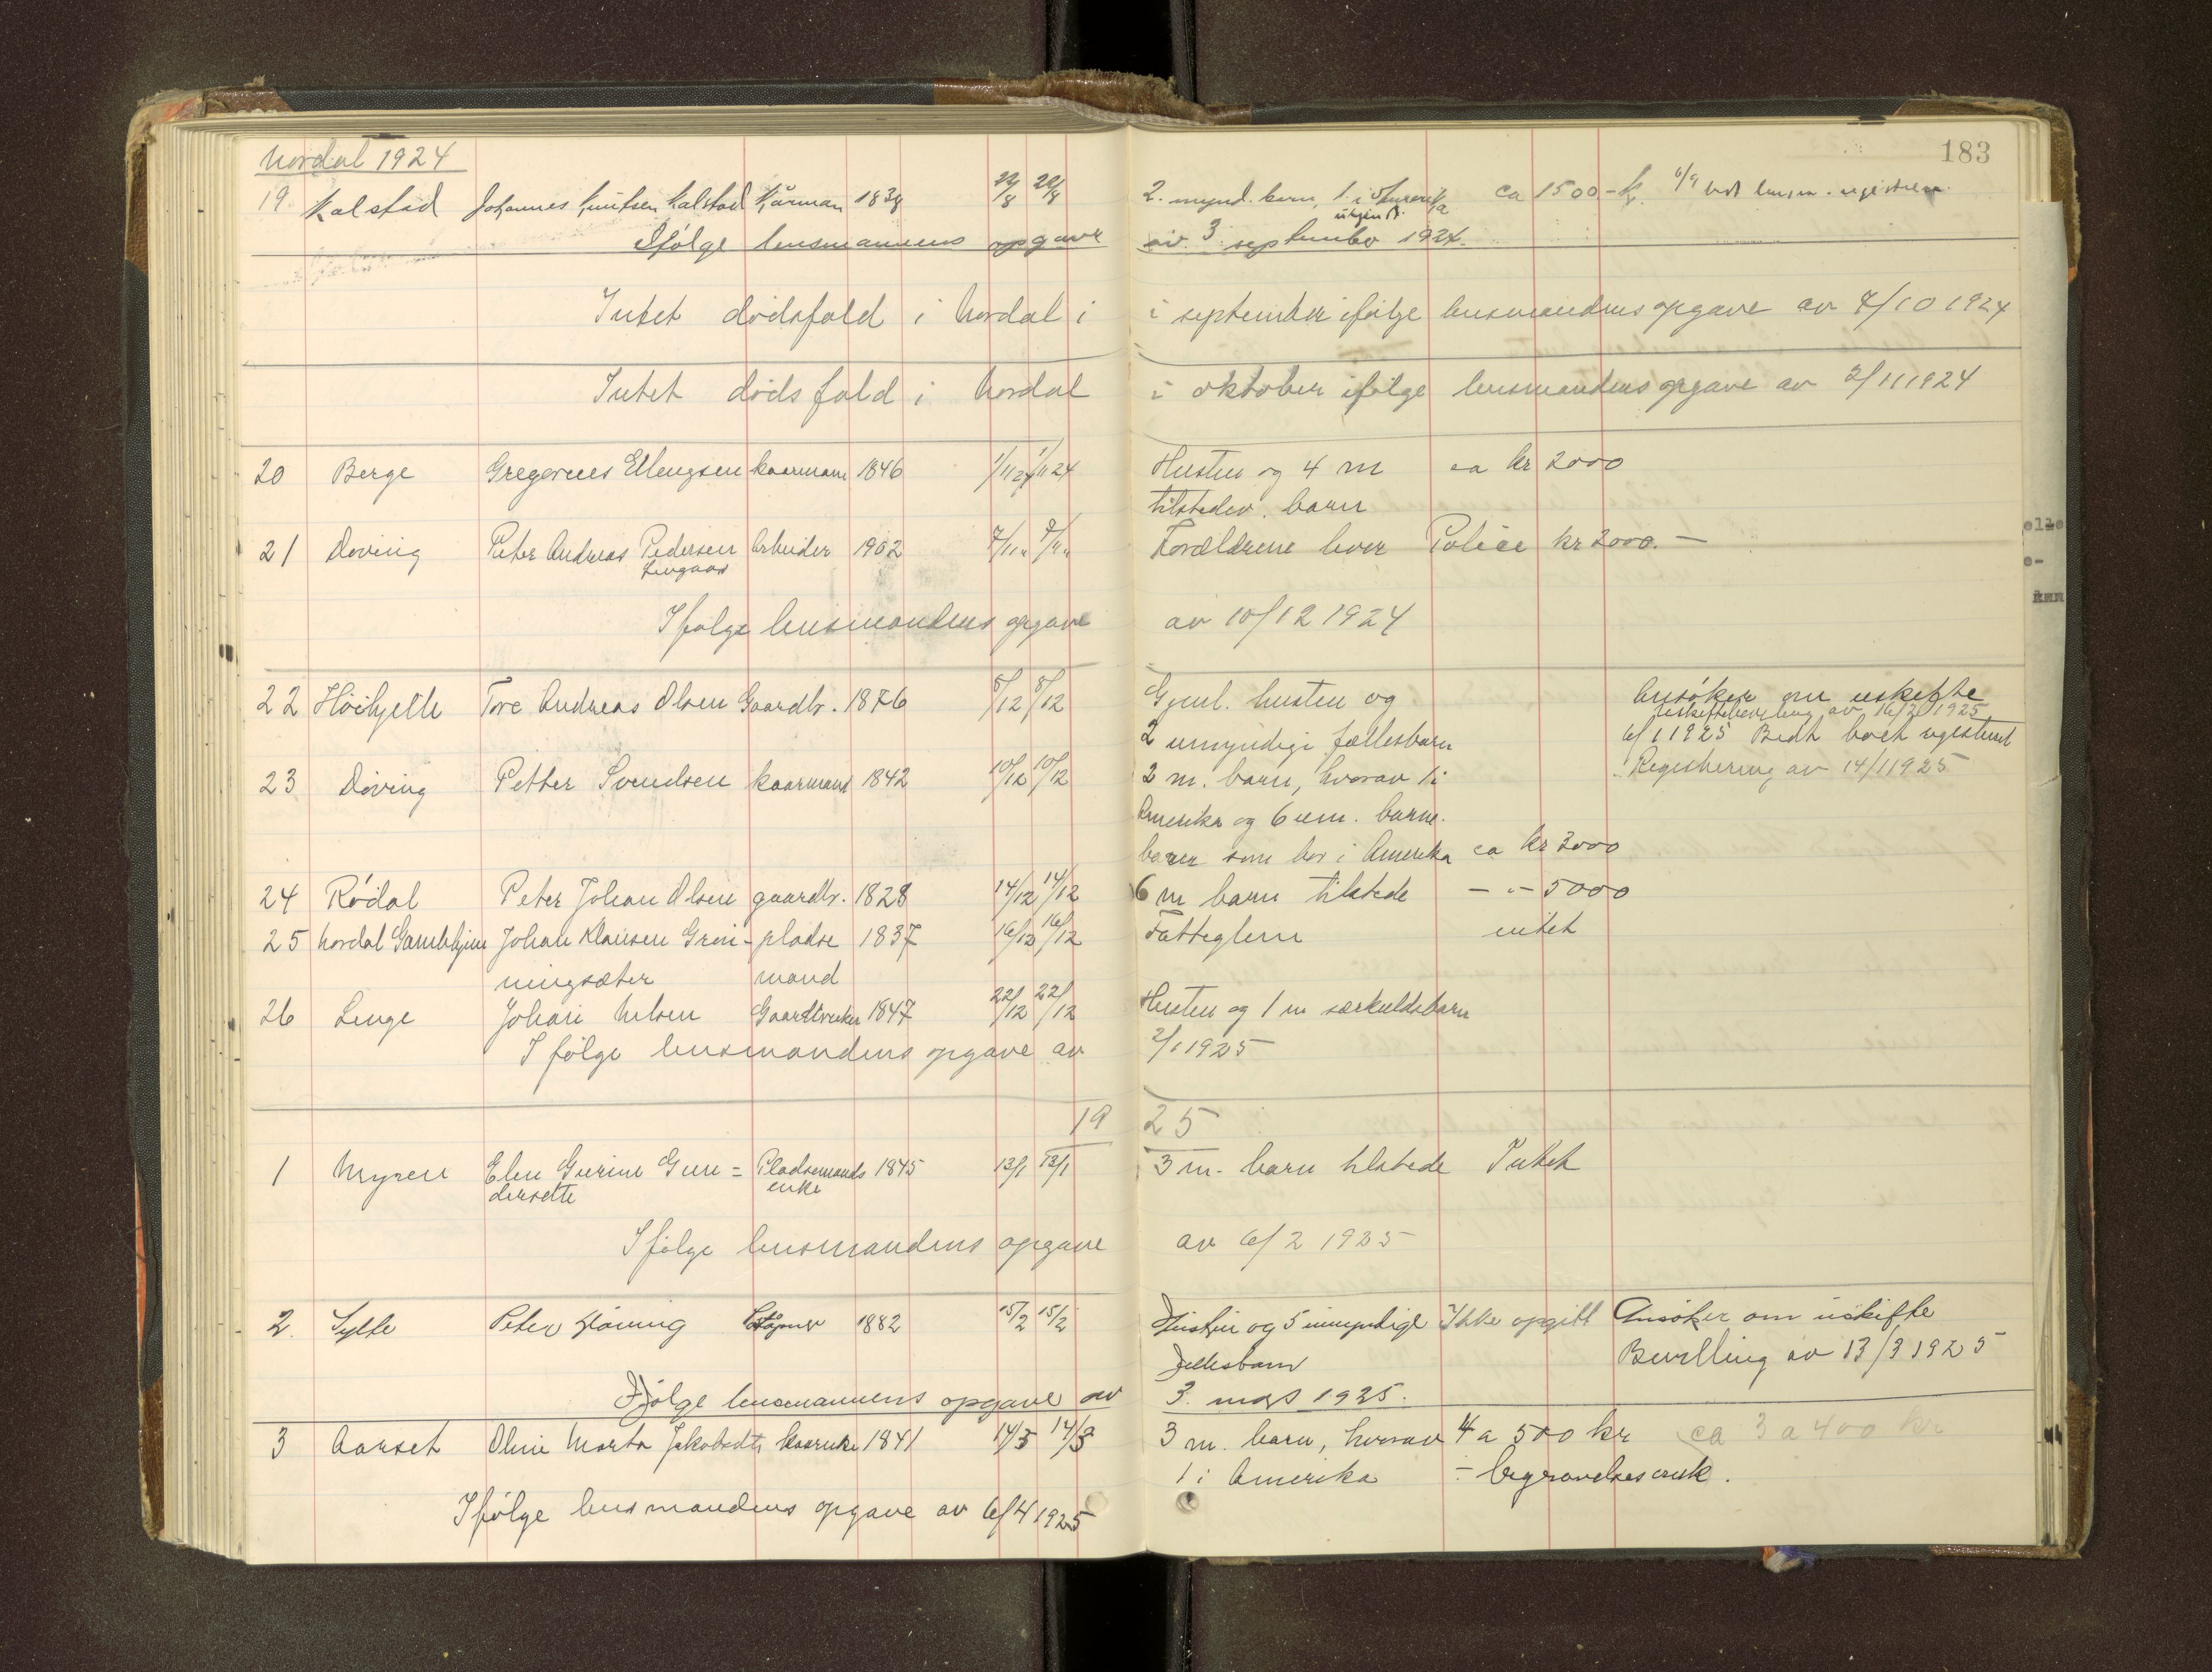 183
Nordal 1924
19. Kalstad Johannes Knutsen Kalstad Kårman 1838 22/8 22/8 2. mynd. barn, 1 i Amerika ca 1500 - kr. 6/9 bedt lensm. registrere.
Ifølge lensmannens opgave av 3 september 1924.
Intet dødsfald i Nordal i i september ifølge lensmandens opgave av 7/10 1924
Intet dødsfald i Nordal i oktober ifølge lensmandens opgave av 2/11 1924
20 Berge Gregorius Ellingsen kaarmann 1846 1/11 24 1/11 24 Hustru og 4 m ca kr 2000
tilstedev. barn
21 Døving Peter Andreas Pedersen Arbeider 1902 7/11 " Forældrene lever Police kr 2000. —
Ifølge lensmandens opgave av 10/12 1924
22 Høihjelle Tore Andreas Olsen Gaardbr. 1876 8/12 8/12 Gjenl. hustru og Ansøker om uskifte
uskiftebevilling av 16/2 1925
2 umyndige fællesbarn 6/1 1925 Bedt boet registrert
23 Døving Petter Svendsen kaarmand 1842 10/12 10/12 2 m. barn, hvorav 1 i Registrering av 14/1 1925
Amerika og 6 um. barne-
barn som bor i Amerika ca kr 2000
24 Rødal Peter Johan Olsen gaardbr. 1828 14/12 14/12 6 m barn tilstede — " — 5000
25 Nordal Gamlehjem Johan Klausen Grøn- plads 1837 16/12 16/12 Fattiglem intet
ningsæter mand
26 Linge Johan Nilsen Gaardbruker 1847 22/12 22/12 Hustru og 1 m særkuldsbarn
I følge lensmandens opgave av 2/1 1925
1925
1 Myren Elen Gurine Gun= Pladsemands 1845 13/1 13/1 3 m. barn tilstede Intet
dersette enke
Ifølge lensmandens opgave av 6/2 1925
2. Sylte Peter Døving 1882 15/2 15/2 Hustru og 5 umyndige Ikke opgitt Ansøker om uskifte
fellesbarn Bevilling av 13/3 1925
Ifølge lensmannens opgave av 3. mars 1925.
3 Aarset Oline Marta Jakobsdtr kaarenke 1841 14/3 14/3 3 m. barn, hvorav 4 a 500 kr ca 3 a 400 kr
1 i Amerika ÷ begravelsesomk.
Ifølge lensmandens opgave av 6/4 1925